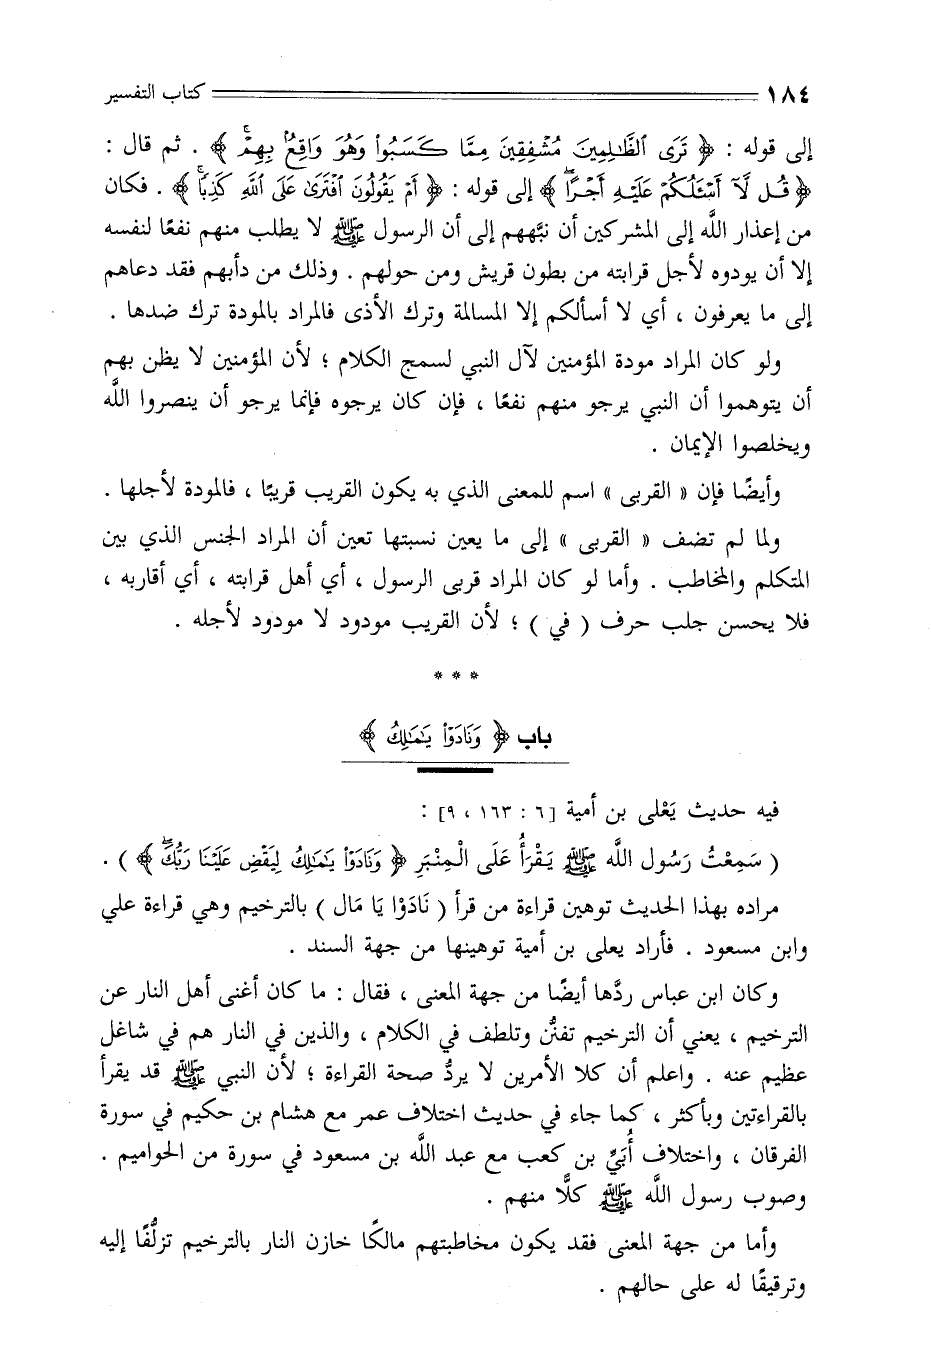 ١٨٤ كتاب التفسير
إلى قوله : ﴿ تَرَى ٱلظَّٰلِمِينَ مُشْفِقِينَ مِمَّا كَسَبُوا۟ وَهُوَ وَاقِعٌۢ بِهِمْ ﴾ . ثم قال :
﴿ قُل لَّآ أَسْـَٔلُكُمْ عَلَيْهِ أَجْرًا ﴾ إلى قوله : ﴿ أَمْ يَقُولُونَ ٱفْتَرَىٰ عَلَى ٱللَّهِ كَذِبًا ﴾ . فكان
من إعذار اللَّه إلى المشركين أن نبَّههم إلى أن الرسول ﷺ لا يطلب منهم نفعًا لنفسه
إلا أن يودوه لأجل قرابته من بطون قريش ومن حولهم . وذلك من دأبهم فقد دعاهم
إلى ما يعرفون ، أي لا أسألكم إلا المسالمة وترك الأذى فالمراد بالمودة ترك ضدها .
ولو كان المراد مودة المؤمنين لآل النبي لسمج الكلام ؛ لأن المؤمنين لا يظن بهم
أن يتوهموا أن النبي يرجو منهم نفعًا ، فإن كان يرجوه فإنما يرجو أن ينصروا اللَّه
ويخلصوا الإيمان .
وأيضًا فإن « القربى » اسم للمعنى الذي به يكون القريب قريبًا ، فالمودة لأجلها .
ولما لم تضف « القربى » إلى ما يعين نسبتها تعين أن المراد الجنس الذي بين
المتكلم والمخاطب . وأما لو كان المراد قربى الرسول ، أي أهل قرابته ، أي أقاربه ،
فلا يحسن جلب حرف ( في ) ؛ لأن القريب مودود لا مودود لأجله .
* * *
باب ﴿ وَنَادَوْا۟ يَٰمَٰلِكُ ﴾
فيه حديث يَعْلى بن أمية [ ٦ : ١٦٣ ، ٩ ] :
( سَمِعْتُ رَسُول اللَّه ﷺ يَقْرَأُ عَلَى الْمِنْبَرِ ﴿ وَنَادَوْا۟ يَٰمَٰلِكُ لِيَقْضِ عَلَيْنَا رَبُّكَ ﴾ ) .
مراده بهذا الحديث توهين قراءة من قرأ ( نَادَوْا يَا مَال ) بالترخيم وهي قراءة علي
وابن مسعود . فأراد يعلى بن أمية توهينها من جهة السند .
وكان ابن عباس ردَّها أيضًا من جهة المعنى ، فقال : ما كان أغنى أهل النار عن
الترخيم ، يعني أن الترخيم تفنُّن وتلطف في الكلام ، والذين في النار هم في شاغل
عظيم عنه . واعلم أن كلا الأمرين لا يردُّ صحة القراءة ؛ لأن النبي ﷺ قد يقرأ
بالقراءتين وبأكثر ، كما جاء في حديث اختلاف عمر مع هشام بن حكيم في سورة
الفرقان ، واختلاف أُبَيِّ بن كعب مع عبد اللَّه بن مسعود في سورة من الحواميم .
وصوب رسول اللَّه ﷺ كلًّا منهم .
وأما من جهة المعنى فقد يكون مخاطبتهم مالكًا خازن النار بالترخيم تزلُّفًا إليه
وترقيقًا له على حالهم .